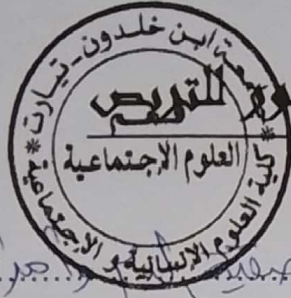 جامعة ابن خلدون - تيارت
للتربص
العلوم الإجتماعية
كلية العلوم الإنسانية و الإجتماعية